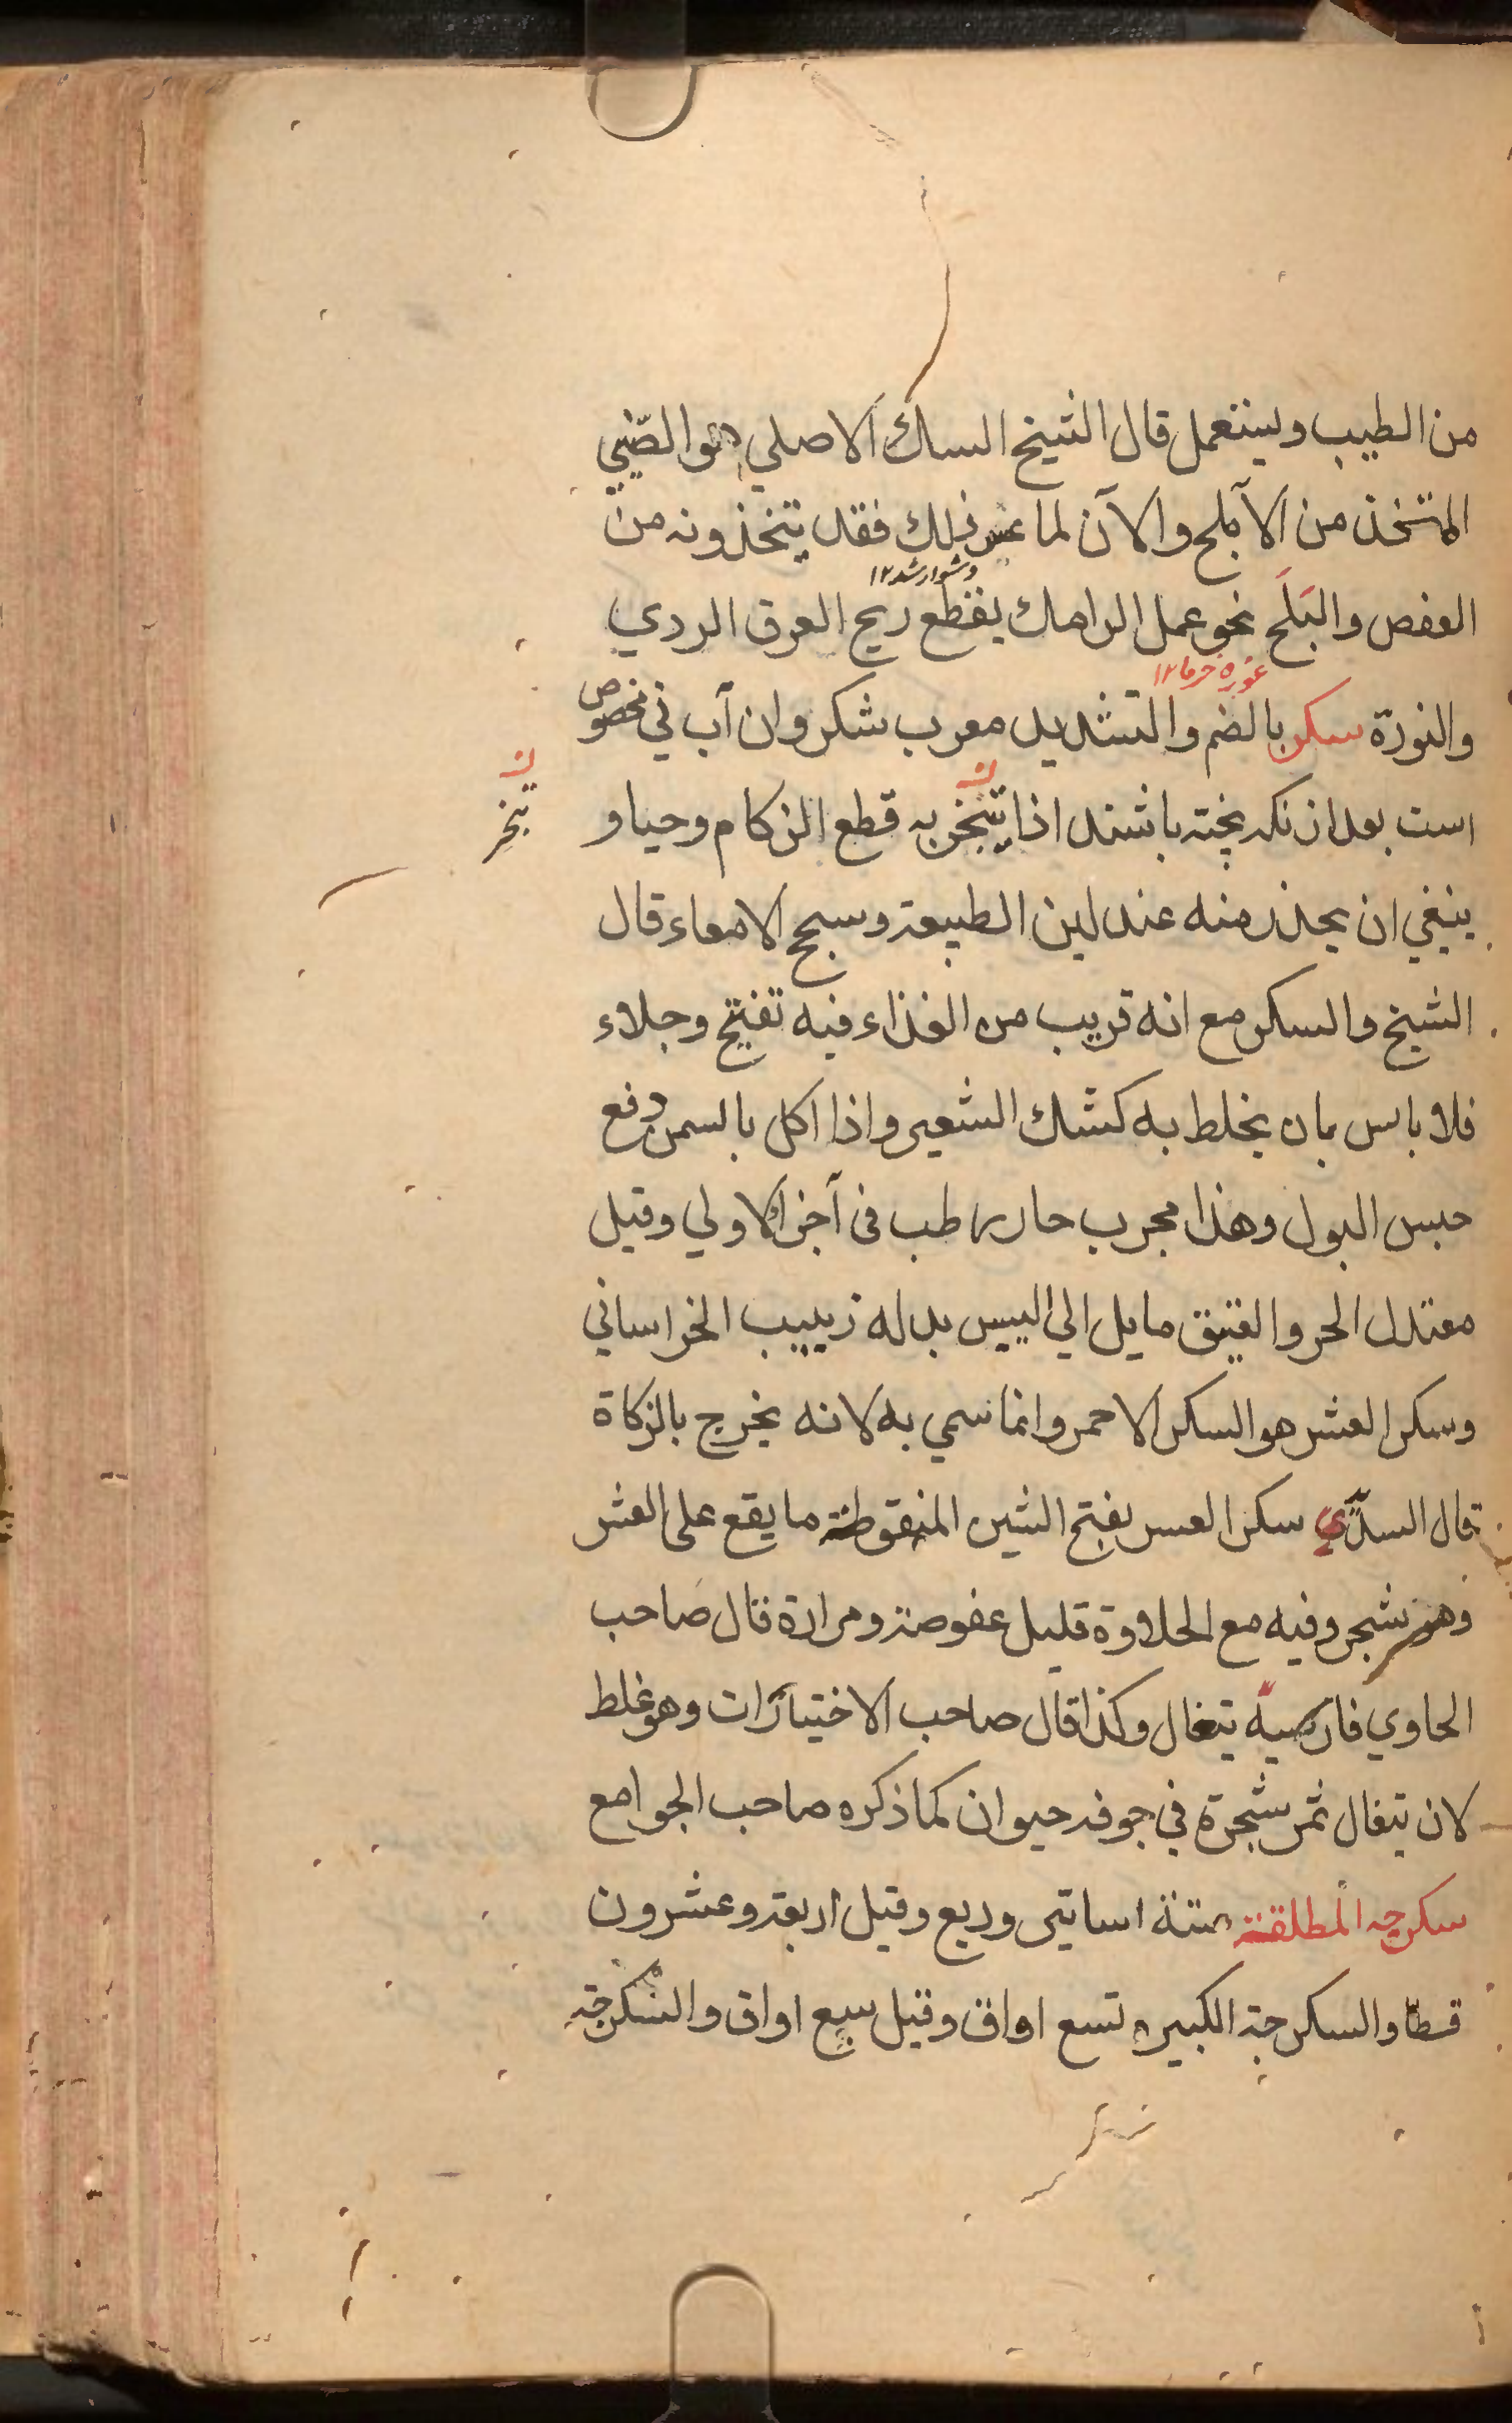 من الطيب ويستعمل قال الشيخ السك الاصلي هو الصّيني
المتخذ من الآملج والآن لما عسر ذلك فقد يتخذونه من
دشوار شد ١٢
العفص والبَلَح نحو عمل الرامك يقطع ريح العرق الردي
غوره خرما ١٢
والنورة سكر بالضم والتشديد معرب شكر وان آب ني مخصوص
است بعد ازنكه پخته باشند اذا يتبخر به قطع الزكام وحيا و
ن
تبخر
ينبغي ان يحذر منه عند لين الطبيعة وسحج الامعاء قال
الشيخ والسكر مع انه قريب من الغذاء فيه تفتيح وجلاء
فلا باس بان يخلط به كشك الشعير واذا اكل بالسمن دفع
حبس البول وهذا مجرب حار رطب في آخر الاولي وقيل
معتدل الحر والعتيق مايل الي اليبس بدله زبيب الخراساني
وسكر العشر هو السكر الاحمر وانما سمي به لانه يخرج بالزكاة
قال السدّي سكر العسر بفتح الشين المنقوطة ما يقع على العشر
وهو شجر وفيه مع الحلاوة قليل عفوصة ومرارة قال صاحب
الحاوي فارسيه تيغال وكذا قال صاحب الاختيارات وهو غلط
لان تيغال ثمر شجرة في جوفه حيوان كما ذكره صاحب الجوامع
سكرجه المطلقة ستة اساتير وربع وقيل اربعة وعشرون
قسطا والسكرجة الكبيره تسع اواق وقيل سبع اواق والسكرجة